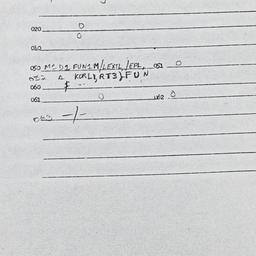 020 0
0
040
050 MCD1 FUN1M/LEXTL/EPL, 051 0
052 & KORL1,RT3)FUN
060 $
061 0 062 0
063 -/-